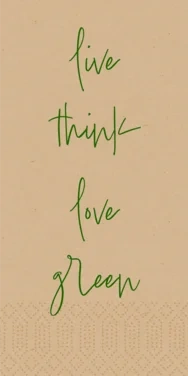 live
think
love
green